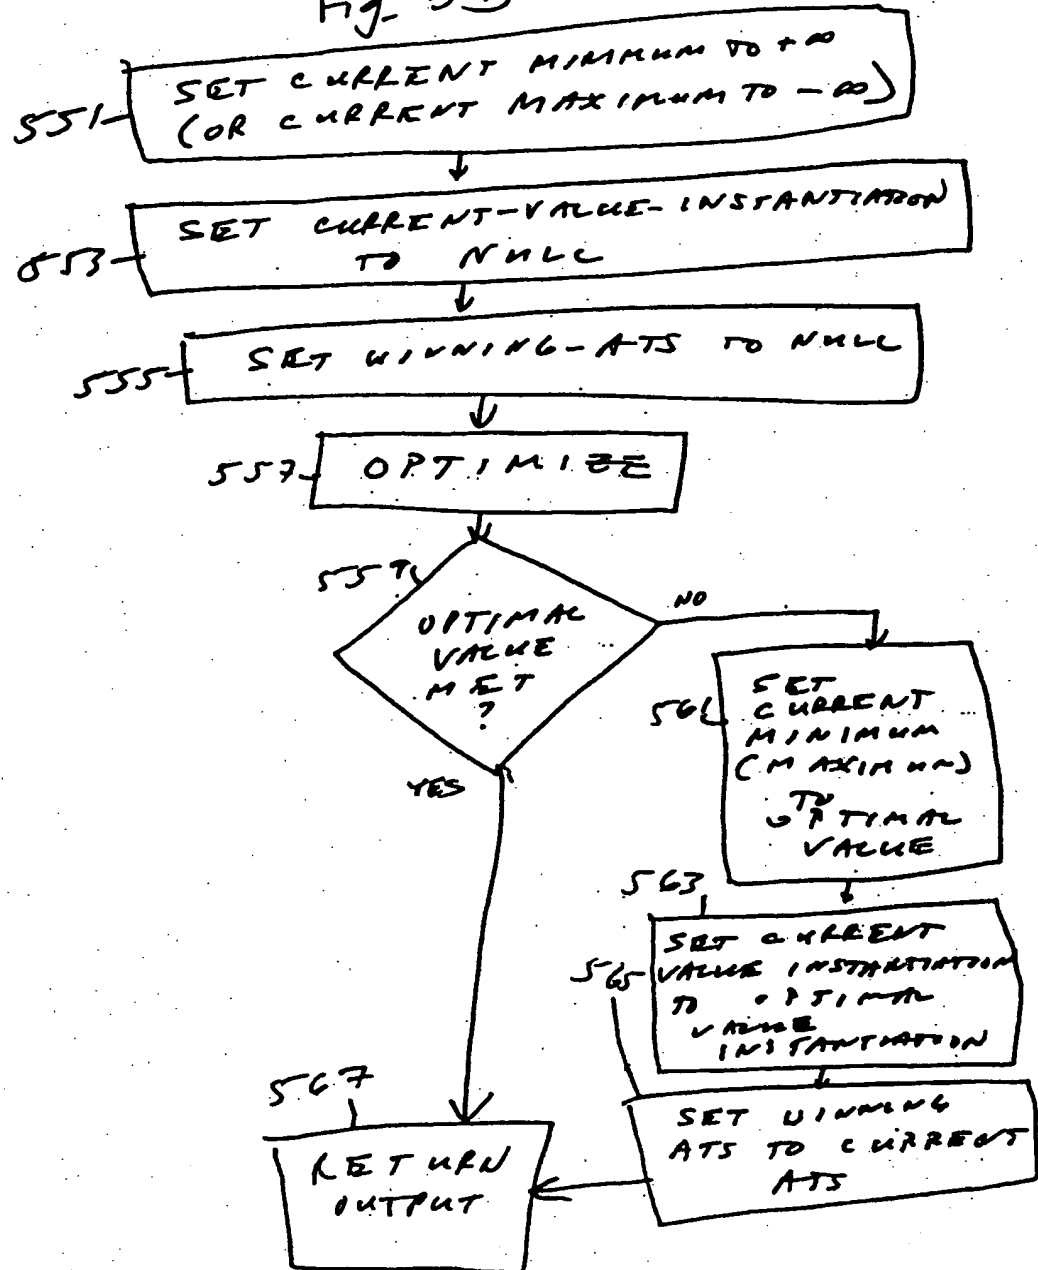 Fig.
551
SET CURRENT MINIMUM TO +∞
(OR CURRENT MAXIMUM TO -∞)
553
SET CURRENT-VALUE-INSTANTIATION
TO NULL
555
SET WINNING-ATS TO NULL
557
OPTIMIZE
559
OPTIMAL
VALUE
MET
?
NO
YES
561
SET
CURRENT
MINIMUM
(MAXIMUM)
TO
OPTIMAL
VALUE
563
SET CURRENT
VALUE INSTANTIATION
TO OPTIMAL
VALUE
INSTANTIATION
565
SET WINNING
ATS TO CURRENT
ATS
567
RETURN
OUTPUT